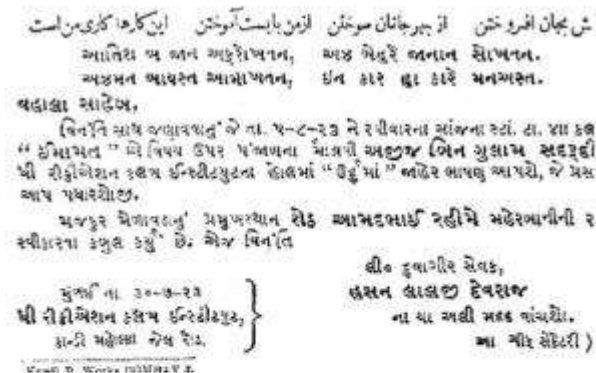 ش بجان افروختن از بهر جانان سوختن ازمن بایست آموختن این کارها کاری من است
આતિશ બ જાન અફરોખતન, અઝ બેહરે જાનાન સોખતન.
અઝમન બાયસ્ત આમોખતન, ઇન કાર હા કારે મનઅસ્ત.
વહાલા સાહેબ,
વિનંતિ સાથ જણાવવાનું જે તા. ૫-૮-૨૩ ને રવીવારના સાંજના સ્ટાં. ટા. ૪ાા કલ
“ ઈમામત ” એ વિષય ઉપર પંજાબના અજીજ બિન ગુલામ સદરૂદ્દી
ધી રીક્રીએશન કલબ ઈન્સ્ટીટયુટના હોલમાં “ ઉર્દુમાં ” જાહેર ભાષણ આપશે, જે પ્રસ
આપ પધારશોજી.
મજકુર મેળાવડાનું પ્રમુખસ્થાન શેઠ આમદભાઈ રહીમે મહેરબાનીની ર
સ્વીકારવા કબુલ કર્યું છે. એજ વિનંતિ
લી૦ દુવાગીર સેવક,
હસન લાલજી દેવરાજ
ના યા અલી મદદ વાંચશો.
મુંબઈ તા. ૩૦-૭-૨૩
ધી રીક્રીએશન કલબ ઈન્સ્ટીટયુટ,
કાન્ડી મહોલ્લા જેલ રોડ.
આ સેક્રેટરી )
P. Works